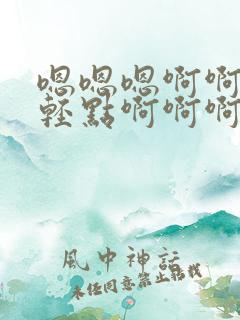 嗯嗯嗯啊啊
輕點啊啊啊
風中神話
未经同意禁止转载